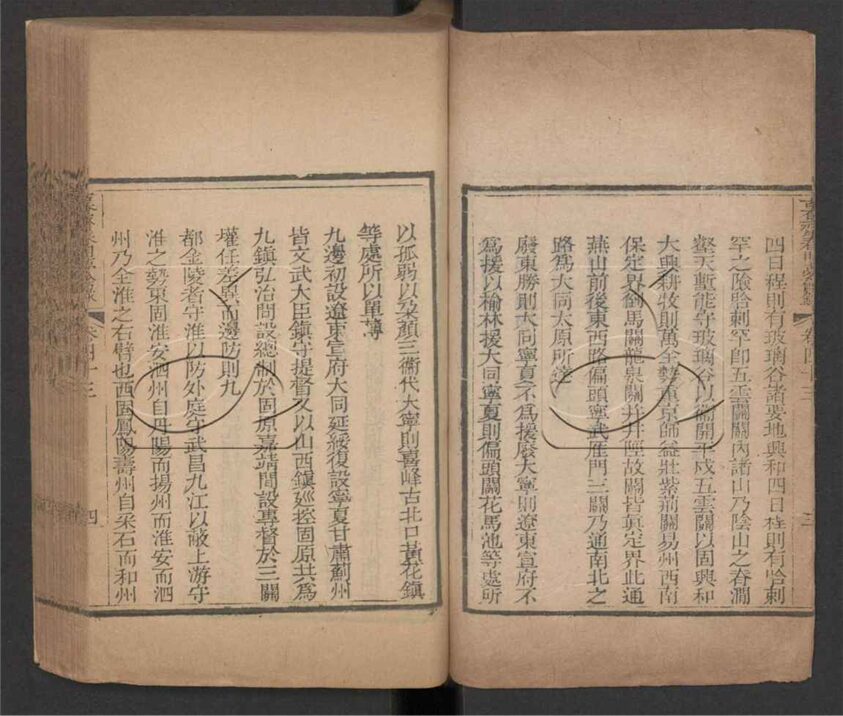 四日程則有玻璃谷諸要地興和四日程則有哈剌
罕之險哈剌罕卽五雲關關內諸山乃陰山之脊澗
壑天塹能守玻璃谷以備開平戍五雲關以固興和
大興耕牧則萬全勢重京師益壯紫荊關易州西南
保定界劉馬關龍泉關井陘故關皆眞定界此通
燕山前後東西路偏頭寧武雁門三關乃通南北之
路爲大同太原所
廢東勝則大同寧夏不爲援廢大寧則遼東宣府不
爲援以榆林援大同寧夏則偏頭關花馬池等處所
卷四十三
三
以孤弱以朶顏三衞代大寧則喜峰古北口黃花鎮
等處所以單薄
九邊初設遼東宣府大同延綏復設寧夏甘肅薊州
皆文武大臣鎮守提督又以山西鎮廵控固原共爲
九鎮弘治間設總制於固原嘉靖間設專督於三關
權任甚異而邊防則九
都金陵者守淮以防外庭守武昌九江以蔽上游守
淮之勢東固淮安泗州自丹陽而揚州而淮安而泗
州乃全淮之右臂也西固鳳陽壽州自采石而和州
卷四十三
四